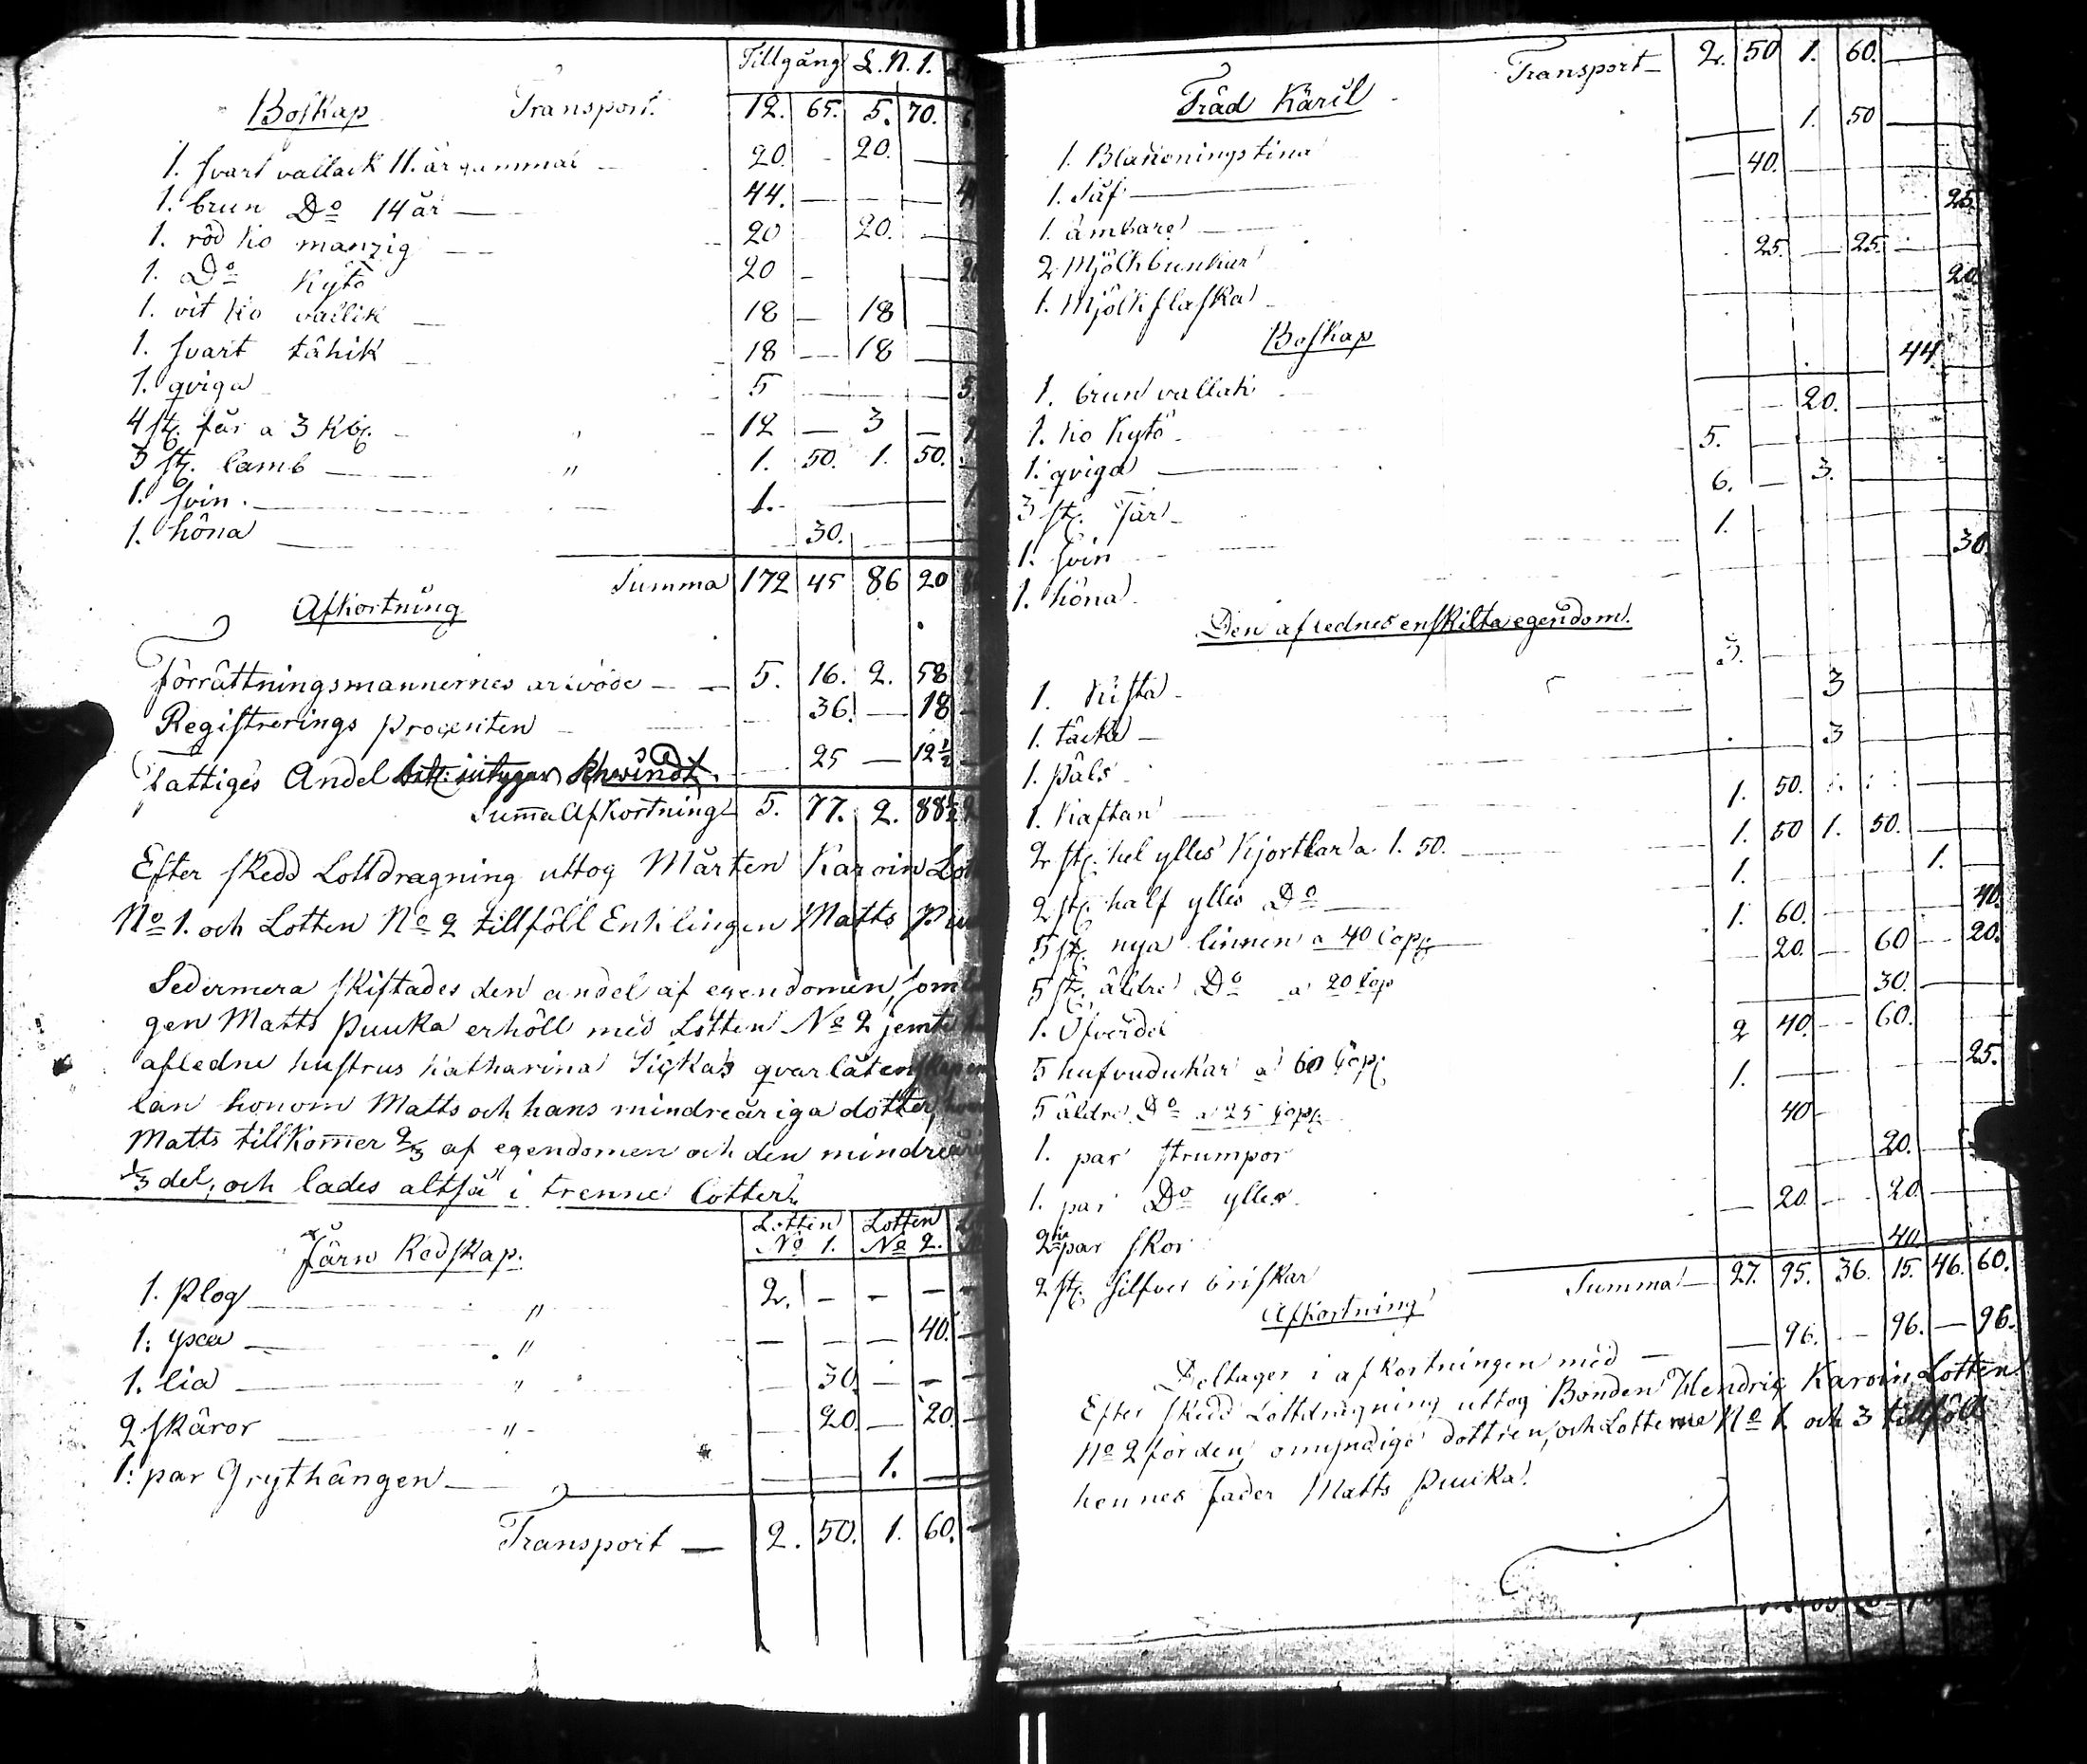 Tillgång L. N. 1.
Boskap Transport. 12. 65. 5. 70. 6.
1. svart vallack 11. år gammal — 20. - 20. —
1. brun Do 14 år — 44. — — — 44
1. röd ko manzig — 20 20. —
1. Do Kytö 20 - — 20
1. vit ko vallik — 18 — 18 —
1. svart tähik 18 — 18 —
1. qviga 5 — — — 5.
4 st. får a 3 Rbl. - " 12 — 3 — 9
3 st. lamb — " 1. 50. 1. 50.
1. svin. — 1. — 1.
1. höna — 30. —
Summa 172 45 86 20
Afkortning
Förrättningsmannernes arwode — 5. 16. 2. 58 2
Registrerings procenten — 36. — 18
Fattiges Andel betr. intygar Schwindt. 25 — 12½
Summa Afkortning 5. 77. 2. 88½ 2
Efter skedd Lottdragning uttog Mårten Karvin Lot
No 1. och Lotten No 2 tillföll Enklingen Matts Pu
Sedermera skiftades den andel af egendomen, som
gen Matts Puuka erhöll med Lotten No 2 jemte
afledne hustrus Katharina qvarlåtenskap
lan honom Matts och hans mindreåriga dotter,
Matts tillkommer 2/3 af egendomen och den mindreåri
1/3 del, och lades altså i trenne Lotter.
Järn Redskap. Lotten No 1. Lotten No 2.
1. Plog — " 2. — — —
1. yxa — " — — — 40.
1. lia — " — 30 — —
2 skäror — " — 20. — 20.
1. par Grythängen — — 1. —
Transport — 2. 50. 1. 60.
Träd Käril Transport — 2. 50 1. 60. —
1. 50 —
1. tina — 40.
1. Såf — 25.
1. ämbare — 25. — 25.
2 Mjölkbunkar 20
1. Mjölkflaska
Boskap
44.
1. brun vallak 20.
1. ko Kytö 5.
1. qviga — 6. — 3.
3 st. Får 1.
1. svin 30.
1. höna
Den aflednes enskilta egendom.
3.
1. Kista 3
1. täcke — 3
1. päls 1. 50.
1. Kaftan 1. 50 1. 50.
2 st. hel ylles Kjortlar a 1. 50. — 1. 1.
2 st. half ylles Do — 1. 60. 40.
5 st. nya linnen a 40 Cop. — 20. — 60 — 20.
5 st. äldre Do a 20 Cop 30.
1. Öfverdel 2 40. — 60.
5 hufvudukar a 60 Cop. 1. — 25.
5 äldre Do a 25 Cop. 40
1. par strumpor 20.
1. par Do ylles — 20. — 20.
2 par skor 40.
2 st. silfver briskar Summa — 27. 95. 36. 15. 46. 60.
Afkortning
Deltager i afkortningen med — — 96. — 96. — 96.
Efter skedd Lottdragning uttog Bonden Hendric Karvin Lotten
No 2 för den omyndige dottren, och Lotterne No 1 och 3 tillföll
hennes Fader Matts Puuka.